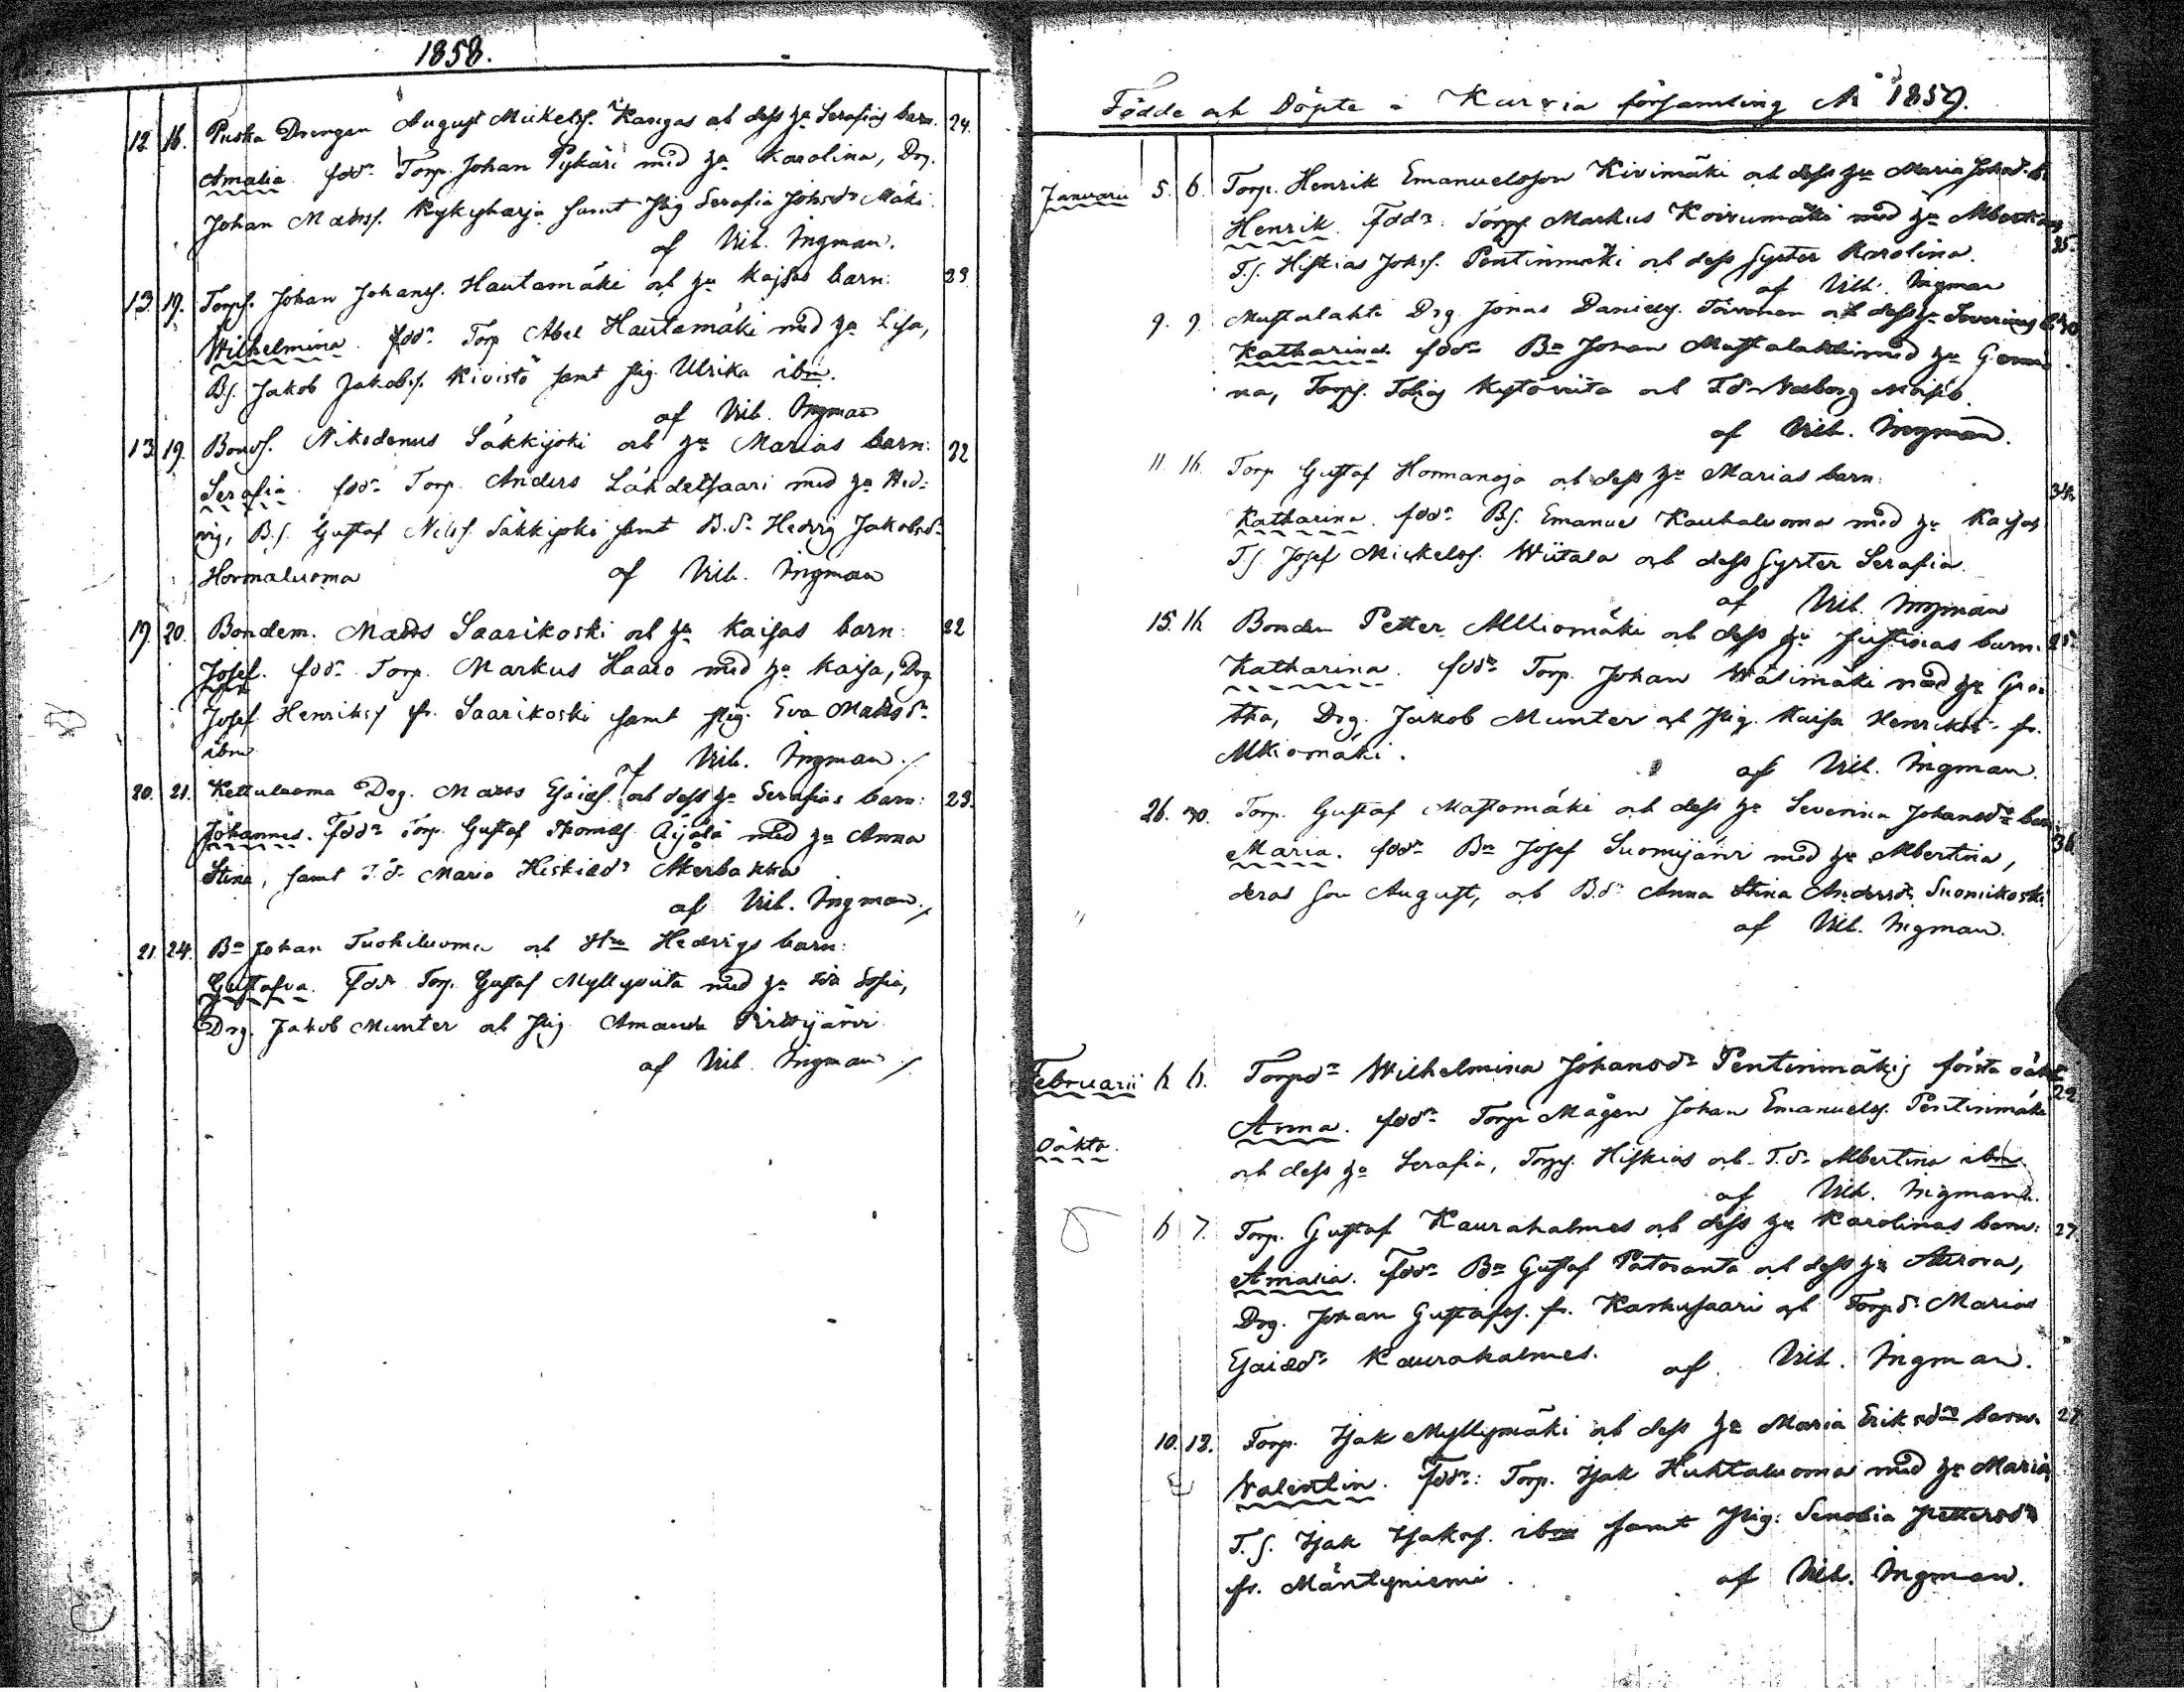 1858.
12. 16. Puska Drengen August Mickelss. Kangas och dess hu Serafias barn. 24.
Amalia. fddr Torp. Johan Pykäri med hu Karolina, Drg.
Johan Matss. Kykyharja samt Pig Serafia Johsdr Mäki.
af Vik. Ingman.
13. 19. Torps. Johan Johanss. Hautamäki och hu Kajsas barn: 23.
Wilhelmina. fddr Torp Abel Hautamäki med hu Lisa,
Bs. Jakob Jakobs. Kivistö samt Pig. Ulrika ibm.
af Vik. Ingman
13. 19. Bonds. Nikodemus Säkkijoki och hu Marias barn: 32
Serafia. fddr Torp. Anders Lähdetsaari med hu Hed-
vig, B.s. Gustaf Nilss. Säkkijoki samt B.dr Hedvig Jakobsdr
Hormaluoma af Vik. Ingman
19. 20. Bondem. Matts Saarikoski och hu Kaisas barn: 22
Josef. fddr Torp. Markus Haaro med hu Kaisa, Drg
Josef Henrikss fr. Saarikoski samt Pig. Eva Mattsdr
ibm af Vik. Ingman.
20. 21. Kettuluoma Drg. Matts Esaias. och dess hu Serafias barn: 23.
Johannes. Fddr Torp. Gustaf Thomass. Äijälä med hu Anna
Stina, samt T.dr Maria Hiskiasdr
af Vik. Ingman.
21. 24. Bn Johan Tuohiluoma och Hu Hedvigs barn:
Gustafva. Fddr Torp. Gustaf Myllyviita med hu Eva Sofia,
Drg. Jakob Munter och Pig. Amanda Pirttijärvi
af Vik. Ingman
Födde och Döpte i Karvia församling År 1859.
Januarii 5. 6. Torp. Henrik Emanuelsson Kivimäki och dess hu Maria Johsdr. b.
Henrik. Fddr. Torps Markus Koivumäki med hu Albertina, 35.
T.s. Hiskias Johss. Pentinmäki och dess syster Karolina.
af Vik. Ingman
9. 9. Mustalahti Drg Jonas Daniels. Toivonen och dess hu Severinas b. 40
Katharina. fddr Bn Johan Mustalahti med hu
na, Torps. Tobias Kystöviita och T.dr Valborg
af Vik. Ingman.
11. 16. Torp Gustaf Hormanoja och dess hu Marias barn: 34.
Katharina. fddr Bs. Emanuel Kauhaluoma med hu Kaisas
T.s. Josef Mickelss. Wiitala och dess syster Serafia.
af Vik. Ingman
15. 16. Bonden Petter Alkiomäki och dess hu Justinas barn. 25.
Katharina. fddr Torp. Johan Wälimäki med hu Gre-
tha, Drg. Jakob Munter och Pig. Kaisa Henriksdr fr.
Alkiomäki. af Vik. Ingman.
26. 30. Torp. Gustaf Mattomäki och dess hu Severina Johansdrs barn: 36
Maria. fddr Bn Josef Suomijärvi med hu Albertina,
deras son August, och B.dr Anna Stina Andersdr Suomikoski
af Vik. Ingman.
Februarii 6. 6. Torpdr Wilhelmina Johansdr Pentinmäkis första oäkta 22
Anna. fddr Torp Mågen Johan Emanuels. Pentinmäki
Oäkta.
och dess hu Serafia, Torps. Hiskias och T.dr Albertina ibm.
af Vik. Ingman.
6 7. Torp. Gustaf Kaurahalmes och dess hu Karolinas barn: 27
Amalia. Fddr Bn Gustaf Patoranta och dess hu Aurora,
Drg. Johan Gustafss. fr. Karhusaari och Torpdr Marias
Esaiædr Kaurahalmes. af Vik. Ingman.
10. 13. Torp. Isak Myllymäki och dess hu Maria Eriksdrs barn. 27
Valentin. Fddr: Torp. Isak Huhtaluoma med hu Maria,
T.s. Isak Isakss. ibm samt Pig: Senobia Pettersdr
fr. Mäntyniemi. af Vik. Ingman.